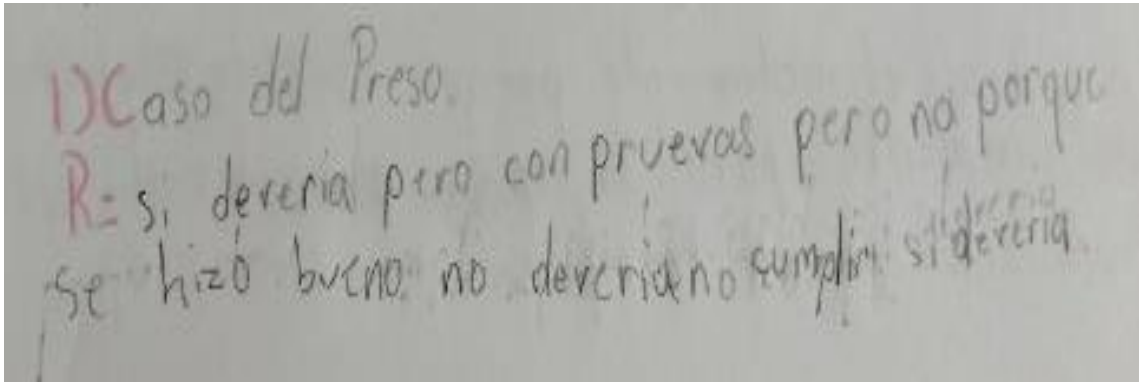 1) Caso del Preso.
R= si devería pero con pruevas pero no porque
se hizó bueno no devería no cumplir si devería